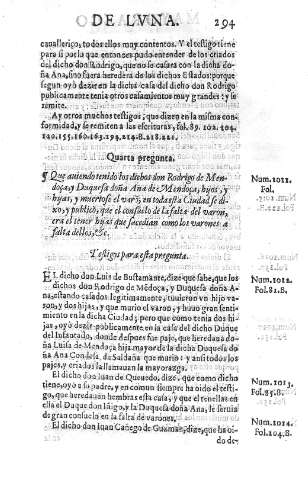 DE LVNA. 294
cavallerizo, todos ellos muy contentos. Y el testigo tiene
para si por la que entonces pudo entender de los criados
del dicho don Rodrigo, que no se casara con la dicha do-
ña Ana, sino fuera heredera de los dichos Estados: porque
segun oyò dezir en la dicha casa del dicho don Rodrigo
publicamente tenia otros casamientos muy grandes: y se
remite.
Ay otros muchos testigos, que dizen en la misma con-
formidad, y se remiten a las escrituras, fol. 89. 102. 104.
Quarta pregunta.
¶ Que auiendo tenido los dichos don Rodrigo de Men-
doça, y Duquesa doña Ana de Mendoça, hijos, y
hijas, y muertose el varõ, en toda esta Ciudad se di-
xo, y publicò, que el consuelo de la falta del varon,
era el tener hijas que sucedian como los varones a
falta dellos, &c.
Num.1011.
Fol.
Testigos para esta pregunta.
EL dicho don Luis de Bustamante, dize que sabe, que los
dichos don Rodrigo de Mẽdoça, y Duquesa doña A-
na, estando casados legitimamente, tuuieron vn hijo va-
ron, y dos hijas, y que murio el varon, y huuo gran senti-
miento en la dicha Ciudad; pero que como tenia dos hi-
jas, oyò dezir publicamente en la casa del dicho Duque
del Infantado, donde despues fue paje, que heredaua do-
ña Luisa de Mendoça hija mayor de la dicha Duquesa do-
ña Ana Condesa de Saldaña que murio: y ansi todos los
pajes, y criados la llamauan la mayorazga.
Num.1012.
Fol.81.B.
El dicho don Iuan de Quevedo, dize, que como dicho
tiene, oyò a su padre, y en comun siempre ha oido el testi-
go, que heredauan hembras esta casa, y que el tenerlas en
ella el Duque don Iñigo, y la Duquesa doña Ana, le seruia
de gran consuelo en la falta de varones.
Num.1013.
Fol.95.B.
El dicho don Iuan Cañego de Guzman, dize, que ha oi-
do de-
Num.1014.
Fol.104.B.